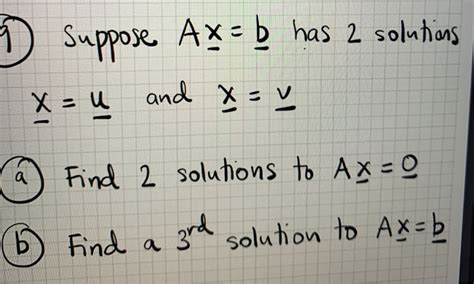 9 Suppose Ax = b has 2 solutions
x = u and x = v
a Find 2 solutions to Ax = 0
b Find a 3rd solution to Ax = b